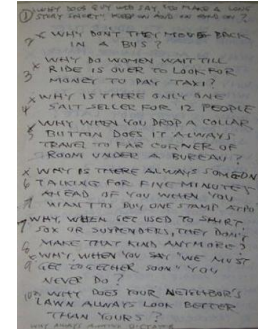 ① WHY DOES GUY WHO SAY "TO MAKE A LONG
STORY SHORT" KEEP ON AND ON AND ON?
2 x WHY DON'T THEY MOVE BACK
IN A BUS?
3 x WHY DO WOMEN WAIT TILL
RIDE IS OVER TO LOOK FOR
MONEY TO PAY TAXI?
4 x WHY IS THERE ONLY ONE
SALT SELLER FOR 12 PEOPLE
5 x WHY WHEN YOU DROP A COLLAR
BUTTON DOES IT ALWAYS
TRAVEL TO FAR CORNER OF
ROOM UNDER A BUREAU?
x WHY IS THERE ALWAYS SOMEONE
6 TALKING FOR FIVE MINUTES
AHEAD OF YOU WHEN YOU
WANT TO BUY ONE STAMP AT PO
7 WHY, WHEN GET USED TO SHIRT,
SOX OR SUSPENDERS, THEY DON'T
8 MAKE THAT KIND ANYMORE?
9 x WHY, WHEN YOU SAY "WE MUST
GET TOGETHER SOON" YOU
NEVER DO?
10 x WHY DOES YOUR NEIGHBOR'S
LAWN ALWAYS LOOK BETTER
THAN YOURS?